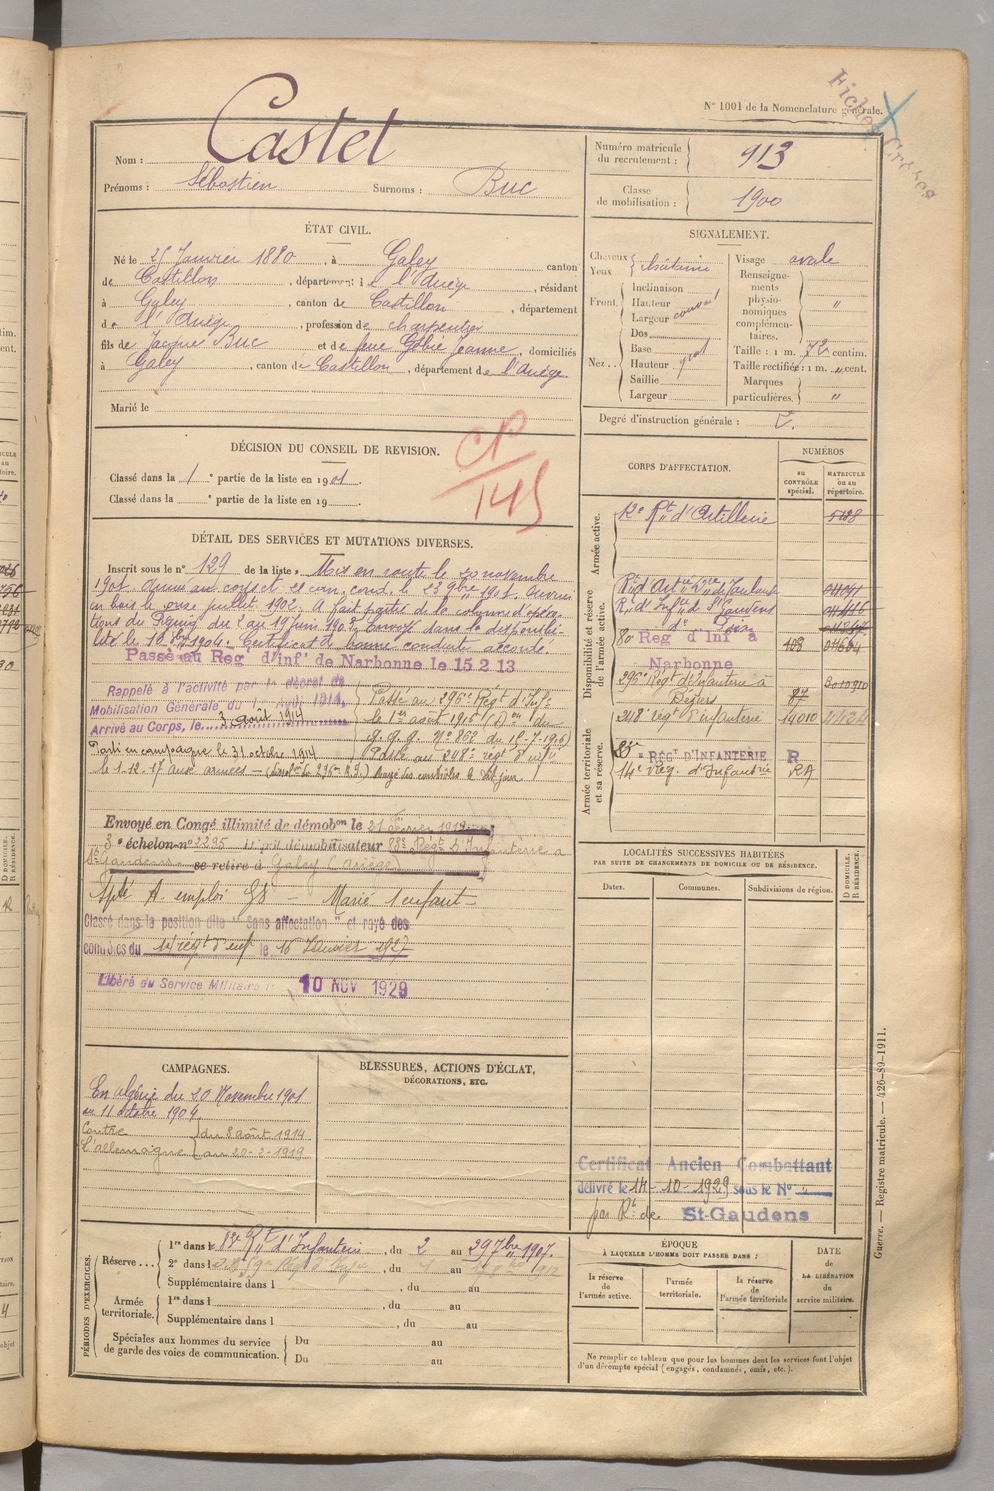 N° 1001 de la Nomenclature générale.
Fiches Créées
Nom : Castet
Prénoms : Sébastien Surnoms : Buc
Numéro matricule du recrutement : 913
Classe de mobilisation : 1900
ÉTAT CIVIL.
Né le 25 Janvier 1880, à Galey canton
de Castillon, département de l'Ariège, résidant
à Galey, canton de Castillon, département
de l'Ariège, profession de charpentier
fils de Jacques Buc et de feue Jeanne, domiciliés
à Galey, canton de Castillon, département de l'Ariège.
Marié le
SIGNALEMENT.
Cheveux
Yeux châtains
Front. Inclinaison
Hauteur
Largeur
Nez... Dos
Base
Hauteur
Saillie
Largeur
Visage ovale
Renseignements physionomiques complémentaires. "
Taille : 1 m. 72 centim.
Taille rectifiée : 1 m. " cent.
Marques particulières. "
Degré d'instruction générale :
DÉCISION DU CONSEIL DE REVISION.
Classé dans la 1 e partie de la liste en 1901.
Classé dans la e partie de la liste en 19 .
CP
145
DÉTAIL DES SERVICES ET MUTATIONS DIVERSES.
Inscrit sous le n° 129 de la liste. Mis en route le 20 novembre
1901. Arrivé au corps et 2e can. cond. le 23 9bre 1901.
en bois le onze juillet 1902. A fait partie de la colonne d'opéra-
tions du Figuig du 1 au 19 juin 1903. Envoyé dans la disponibi-
lité le 1904. Certificat de bonne conduite accordé.
Passé au Reg d'Inf de Narbonne le 15 2 13
Rappelé à l'activité par le décret de
Mobilisation Générale du 1 Août 1914.
Arrivé au Corps, le 3 août 1914
Passé au 296e Régt d'Inf.
le 1er août 1916 (D on du
g.q.g. N° 862 du 15-7-1916)
Parti en campagne le 31 octobre 1914
Passé au 248e régt d'infie
le 1-12-17 aux armées
Envoyé en Congé illimité de démobon le 21 février 1919
3e échelon n° 2295 dépôt démobilisateur 88e Régt d'Infanterie à
St Gaudens se retire à Galey (Ariège)
Apte A. emploi GS - Marié 1 enfant -
Classé dans la position dite "Sans affectation" et rayé des
contrôles du 14e régt d'inf le 15 Janvier 1927
Libéré du Service Militaire le 10 NOV 1929
CORPS D'AFFECTATION.
NUMÉROS
au CONTRÔLE spécial.
MATRICULE ou au répertoire.
Armée active.
12e Rt d'Artillerie 5198
Disponibilité et réserve de l'armée active.
Rt d'Infie de St Gaudens
do
80 Reg d'Inf à Narbonne 108
296e Régt d'infanterie à Béziers 87
248e régt d'infanterie 14010 4424
Armée territoriale et sa réserve.
RÉGT D'INFANTERIE R
14e Rég. d'Infanterie RA
LOCALITÉS SUCCESSIVES HABITÉES
PAR SUITE DE CHANGEMENTS DE DOMICILE OU DE RÉSIDENCE.
Dates. Communes. Subdivisions de région. D DOMICILE. R RÉSIDENCE.
CAMPAGNES.
En algérie du 20 Novembre 1901
au 11 octobre 1904
Contre l'allemagne du 3 août 1914
au 20-2-1919
BLESSURES, ACTIONS D'ÉCLAT,
DÉCORATIONS, ETC.
Certificat Ancien Combattant
délivré le 14-10-1929 sous le N° "
par Rt de St-Gaudens
PÉRIODES D'EXERCICES.
Réserve... 1re dans le 83e Rt d'Infanterie, du 2 au 29 7bre 1907.
2e dans l , du au
Supplémentaire dans l , du au
Armée territoriale. 1re dans l , du au
Supplémentaire dans l , du au
Spéciales aux hommes du service
de garde des voies de communication. Du au
Du au
ÉPOQUE
À LAQUELLE L'HOMME DOIT PASSER DANS :
la réserve de l'armée active.
l'armée territoriale.
la réserve de l'armée territoriale
DATE de LA LIBÉRATION du service militaire.
Ne remplir ce tableau que pour les hommes dont les services font l'objet
d'un décompte spécial (engagés, condamnés, omis, etc.).
Guerre. — Registre matricule. — 426-89-1911.